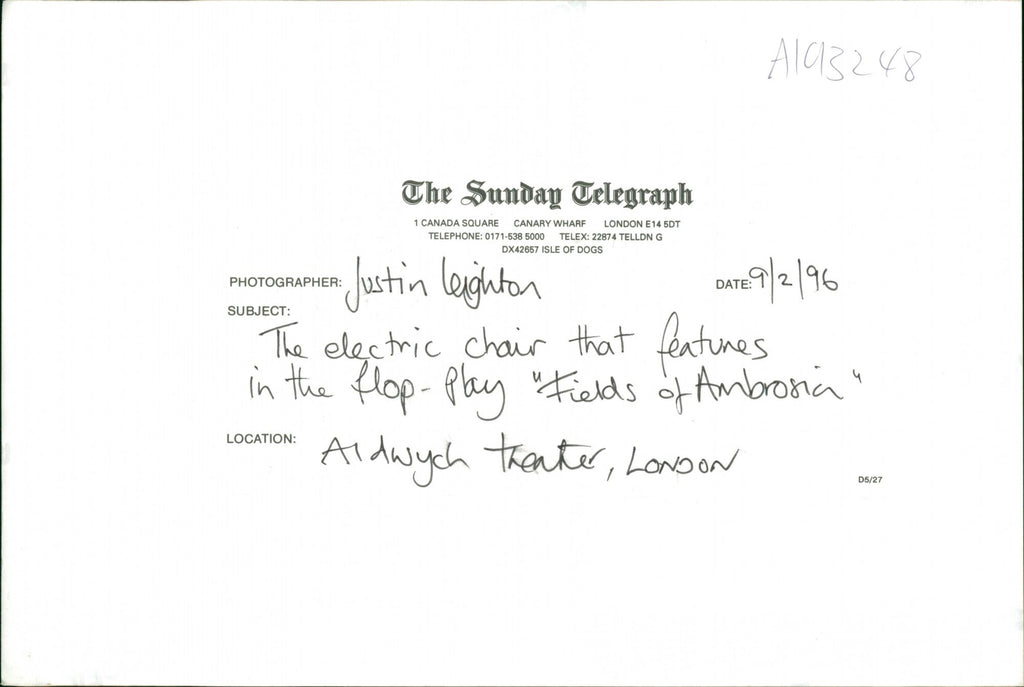 A193248
The Sunday Telegraph
1 CANADA SQUARE CANARY WHARF LONDON E14 5DT
TELEPHONE: 0171-538 5000 TELEX: 22874 TELLDN G
DX42657 ISLE OF DOGS
PHOTOGRAPHER: Justin Leighton DATE: 9/2/96
SUBJECT:
The electric chair that features
in the flop-play "Fields of Ambrosia"
LOCATION: Aldwych theater, LONDON
D5/27